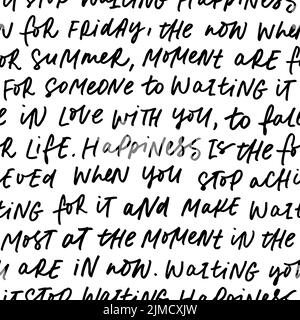 STOP WAITING HAPPINESS
FOR FRIDAY, THE NOW WHEN
OR SUMMER, MOMENT ARE F
FOR SOMEONE TO WAITING IT
E IN LOVE WITH YOU, TO FAL
R LIFE. HAPPINESS IS THE FO
EVED WHEN YOU STOP ACHI
TING FOR IT AND MAKE WAIT
MOST AT THE MOMENT IN THE
U ARE IN NOW. WAITING YOU
IT STOP WAITING HAPPINESS
alamy
Image ID: 2JMCXJW
www.alamy.com